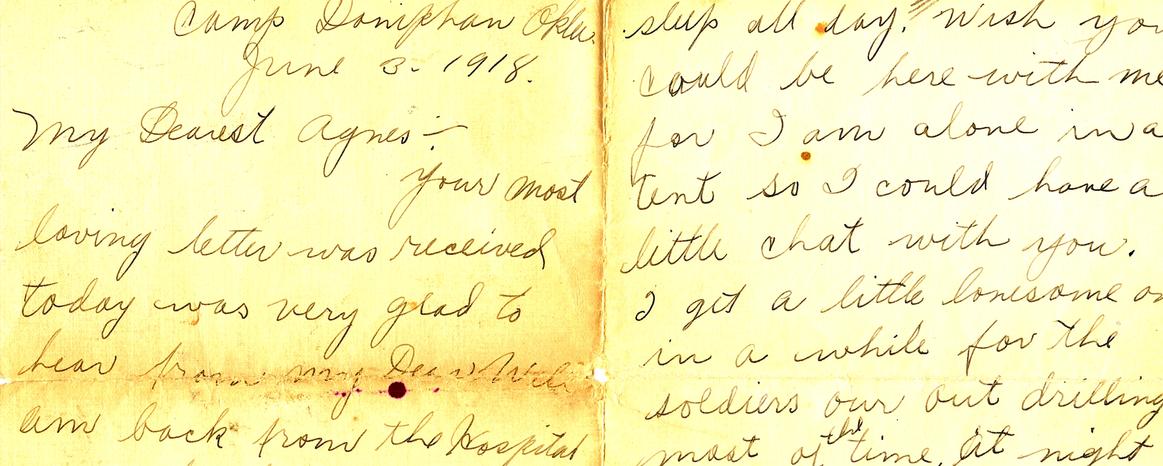 Camp Doniphan Okla.
June 3. 1918.
My Dearest Agnes:-
Your most
loving letter was received
today was very glad to
hear from my Dear
am back from the Hospital
sleep all day. Wish you
could be here with me
for I am alone in a
tent so I could have a
little chat with you.
I get a little lonesome on
in a while for the
soldiers our out drilling
most of the time, At night